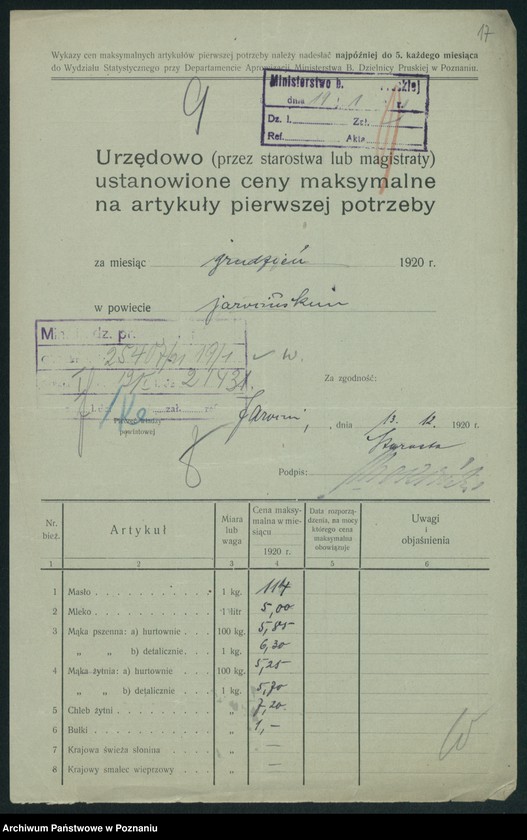 17
Wykazy cen maksymalnych artykułów pierwszej potrzeby należy nadesłać najpóźniej do 5. każdego miesiąca
do Wydziału Statystycznego przy Departamencie Aprowizacji Ministerstwa B. Dzielnicy Pruskiej w Poznaniu.
Ministerstwo b.
dnia r.
Dz. l. Zał.
Ref. Akta
Urzędowo (przez starostwa lub magistraty)
ustanowione ceny maksymalne
na artykuły pierwszej potrzeby
za miesiąc grudzień 1920 r.
w powiecie jarocińskim
dz. pr.
w.
Za zgodność:
zał.
powiatowej
dnia 13. 12. 1920 r.
Starosta
Podpis:
Nr. bież. Artykuł Miara lub waga Cena maksymalna w miesiącu 1920 r. Data rozporządzenia, na mocy którego cena maksymalna obowiązuje Uwagi i objaśnienia
1 2 3 4 5 6
1 Masło 1 kg. 114
2 Mleko 1 litr 5,00
3 Mąka pszenna: a) hurtownie 100 kg. 5,85
„ „ b) detalicznie 1 kg. 6,30
4 Mąka żytnia: a) hurtownie 100 kg. 5,25
„ „ b) detalicznie 1 kg. 5,70
5 Chleb żytni „ 7,20
6 Bułki „ 1,—
7 Krajowa świeża słonina „ —
8 Krajowy smalec wieprzowy „ —
Archiwum Państwowe w Poznaniu